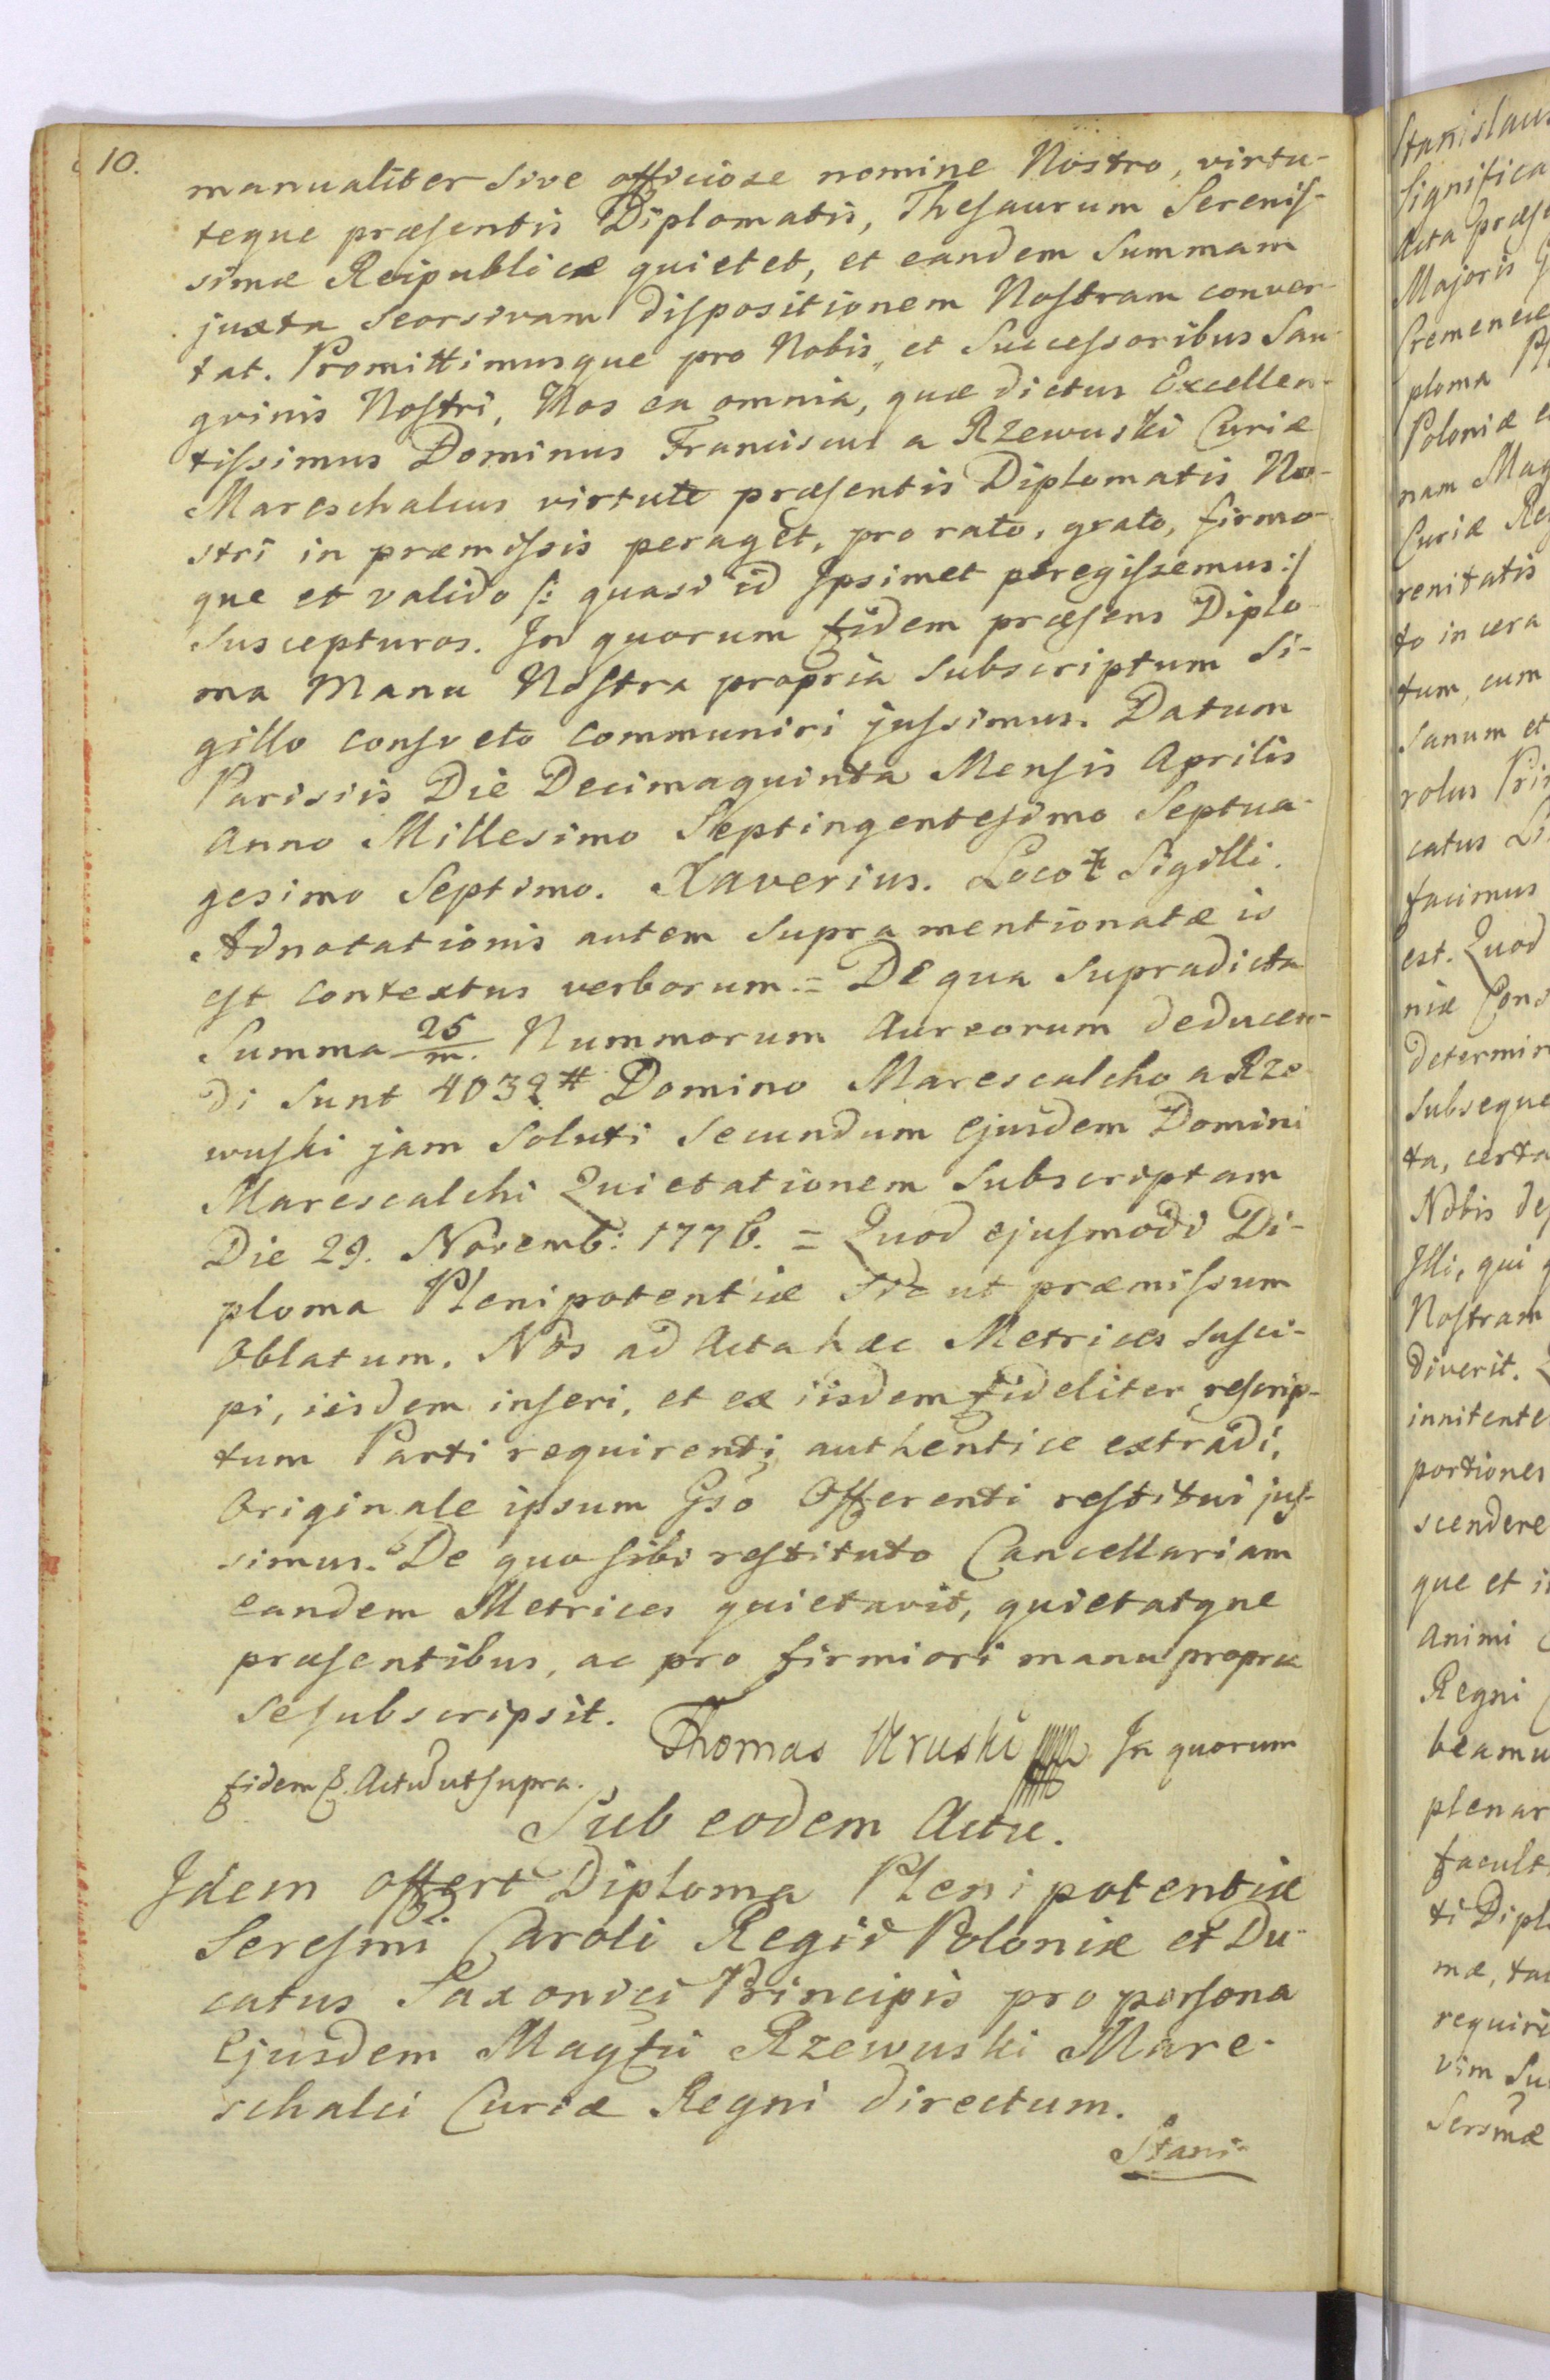 10.
manualiter sive officiose nomine Nostro, virtu-
teque præsentis Diplomatis, Thesaurum Serenis-
simæ Reipublicæ quietet, et eandem Summam
juxta Seorsivam dispositionem Nostram conver-
tat. Promittimusque pro Nobis, et Successoribus San-
gvinis Nostri, Nos ea omnia, quæ dictus Excellen-
tissimus Dominus Franciscus a Rzewuski Curiæ
Mareschalcus virtute præsentis Diplomatis No-
stri in præmissis peraget, pro rato, grato, firmo-
que et valido /: quasi id Ipsimet peregissemus :/
Suscepturos. In quorum fidem præsens Diplo-
ma Manu Nostra propria Subscriptum Si-
gillo consveto communiri jussimus. Datum
Parisiis Die Decimaquinta Mensis Aprilis
Anno Millesimo Septingentesimo Septua-
gesimo Septimo. Xaverius. Loco ‡ Sigilli.
Adnotationis autem supra mentionatæ is
est contextus verborum = De qua Supradicta
Summa 25/m. Nummorum Aureorum deducen-
di Sunt 4032# Domino Marescalcho a Rze-
wuski jam Soluti Secundum Ejusdem Domini
Marescalchi Quietationem Subscriptam
Die 29. Novemb: 1776. = Quod ejusmodi Di-
ploma Plenipotentiæ sic ut præmissum
Oblatum, Nos ad Acta hæc Metrices susci-
pi, iisdem inseri, et ex iisdem fideliter rescrip-
tum Parti requirenti authentice extradi,
Originale ipsum Gso Offerenti restitui jus-
simus. De quo sibi restituto Cancellariam
eandem Metrices quietavit, quietatque
præsentibus, ac pro firmiori manu propria
se subscripsit. Thomas Uruski In quorum
fidem &. Actū ut supra.
Sub eodem Actu.
Idem offert Diploma Plenipotentiæ
Seresmi Caroli Regii Poloniæ et Du-
catus Saxonici Principis pro persona
Ejusdem Magfii Rzewuski Mare-
schalci Curiæ Regni directum.
Stani-
Stanislaus
Significa
Acta præse
Majoris
Cremenece
ploma
Poloniæ
nam Mag
Curiæ Reg
renitatis
to in cera
tum, cum
Sanum et
rolus Pri
catus Li
facimus
est. Quod
niæ Cons
determin
subseque
ta, certa
Nobis de
Illi, qui
Nostram
diverit.
innitente
portiones
scendere
que et i
Animi
Regni
beamu
plenar
facult
ti Dipl
mæ, ta
requiri
vim Su
Sersmæ